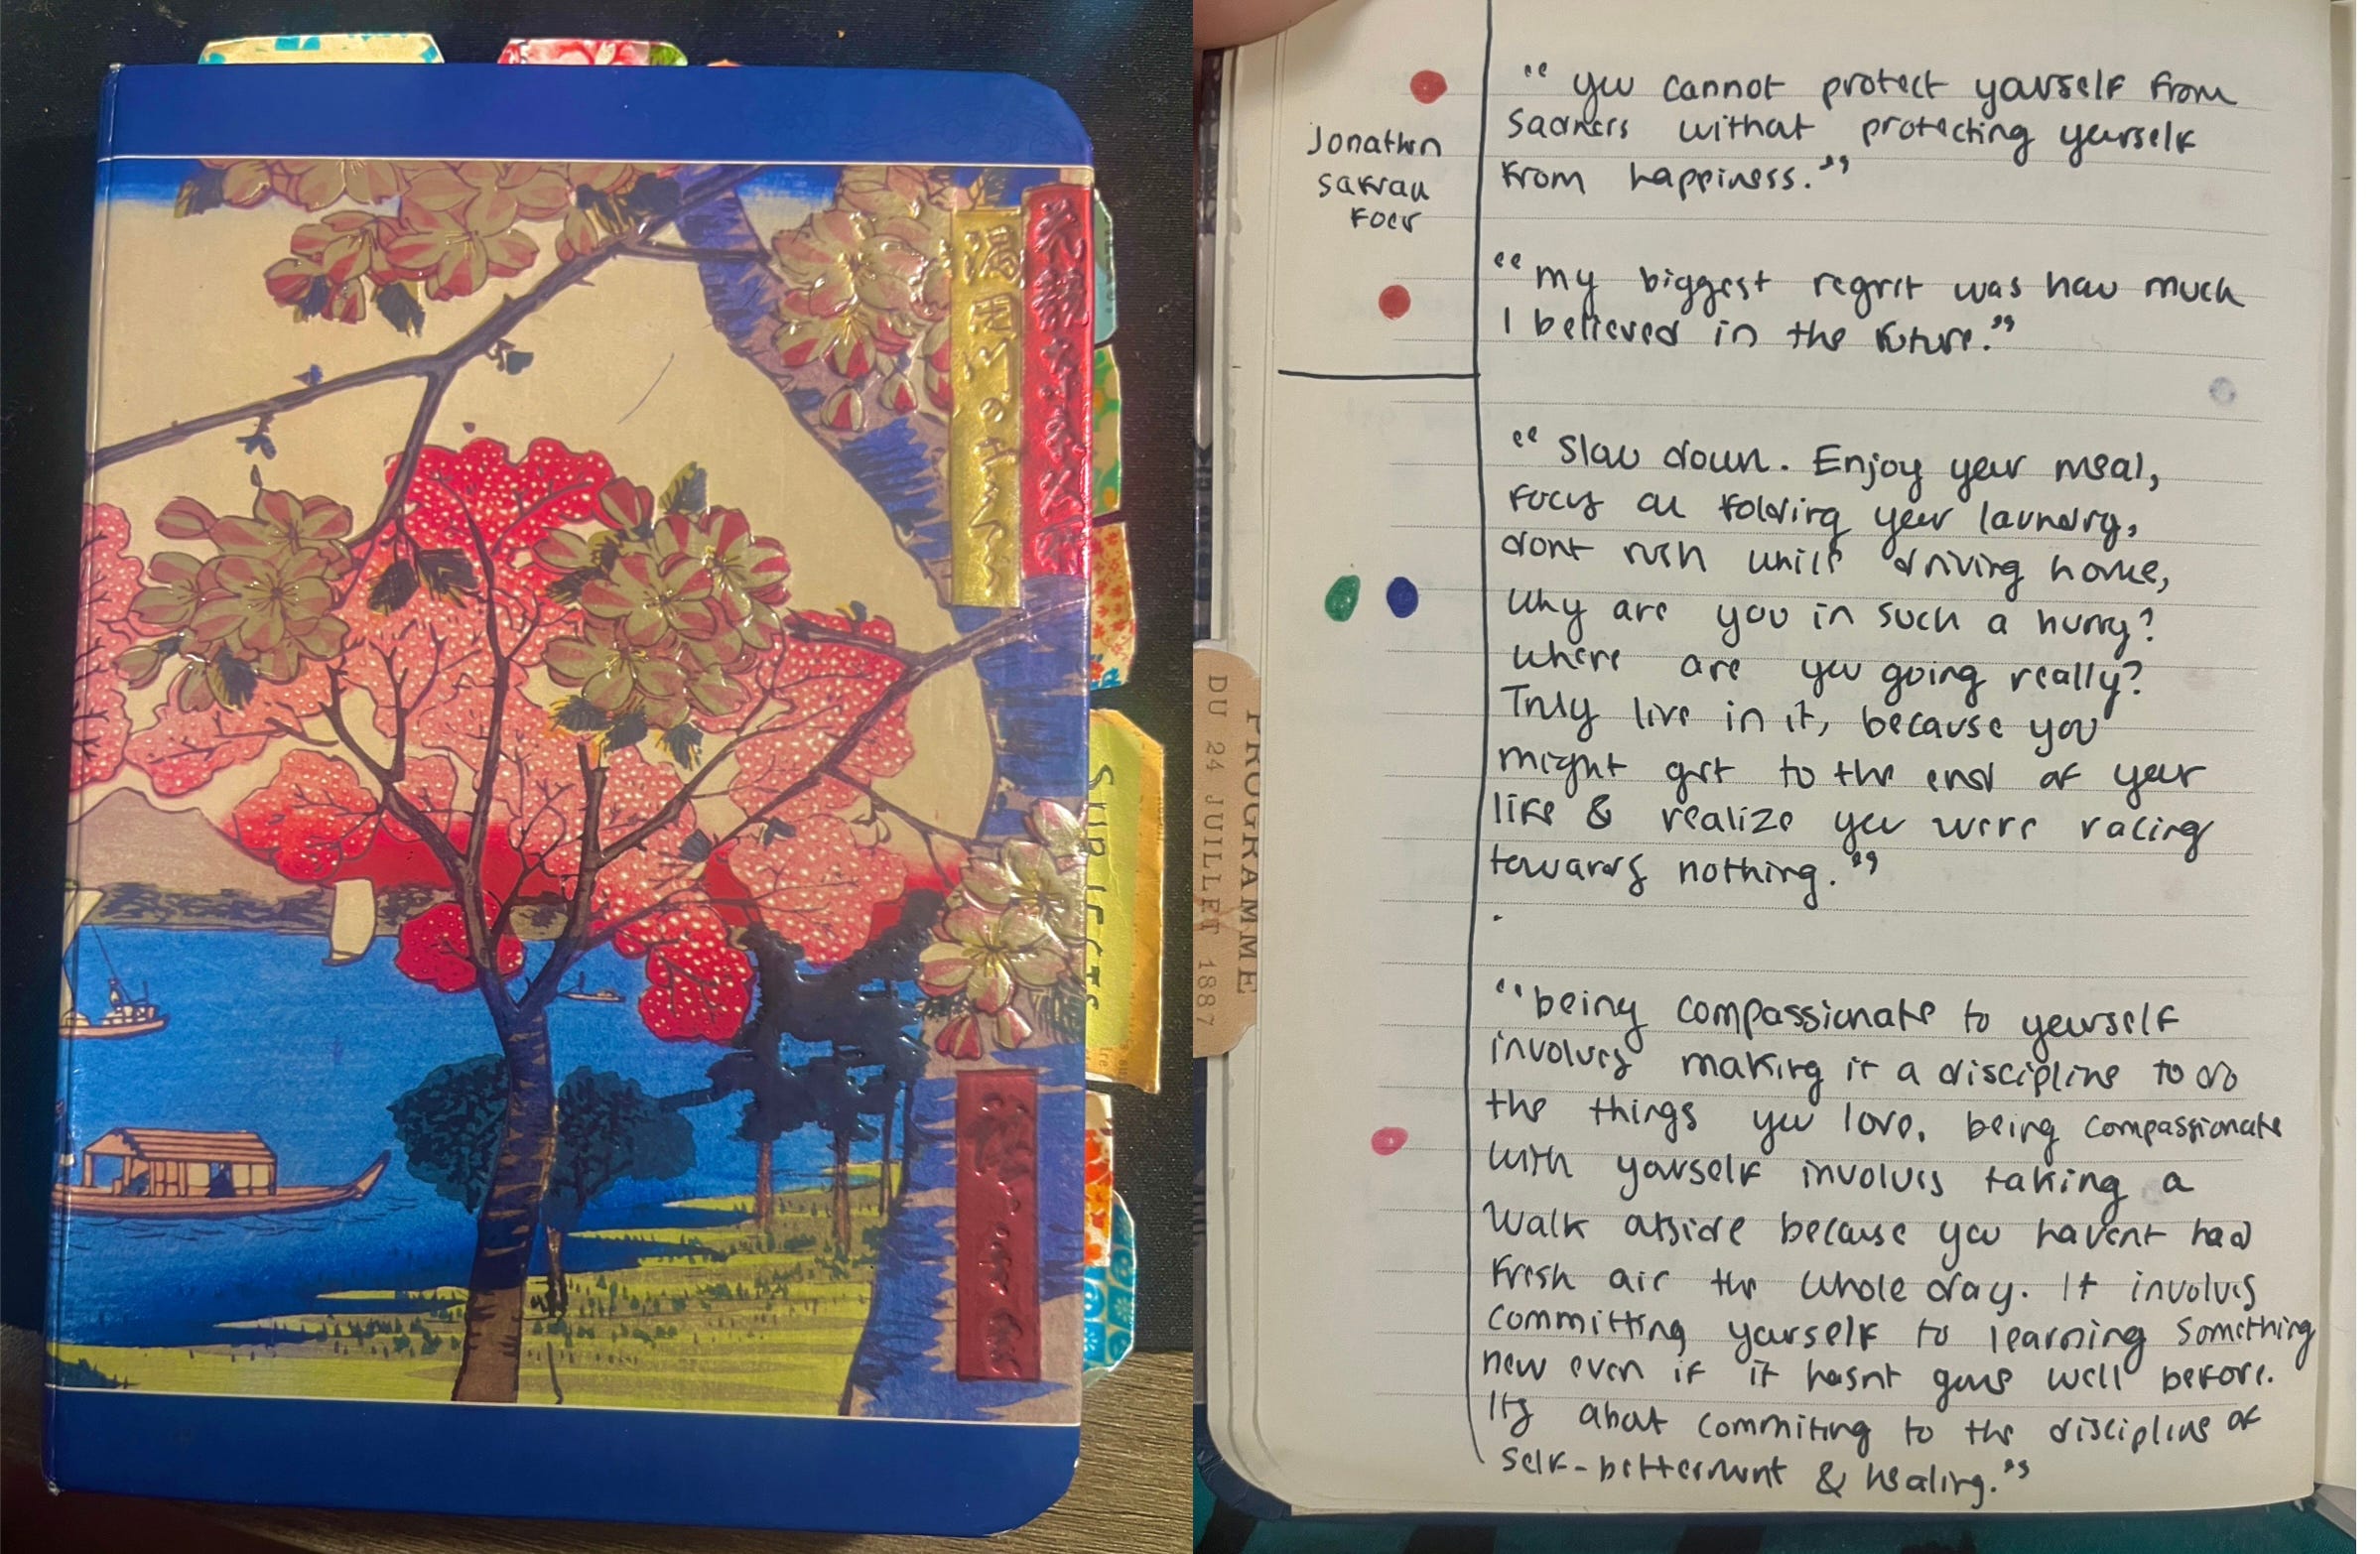 SUBJECTS
PROGRAMME
DU 24 JUILLET 1887
Jonathan
Safran
Foer
"you cannot protect yourself from
sadness without protecting yourself
from happiness."
"my biggest regret was how much
I believed in the future."
"Slow down. Enjoy your meal,
focus on folding your laundry,
dont rush while driving home,
why are you in such a hurry?
where are you going really?
Truly live in it, because you
might get to the end of your
life & realize you were racing
towards nothing."
"being compassionate to yourself
involves making it a discipline to do
the things you love. being compassionate
with yourself involves taking a
walk outside because you havent had
fresh air the whole day. It involves
committing yourself to learning something
new even if it hasnt gone well before.
Its about commiting to the discipline of
self-betterment & healing."